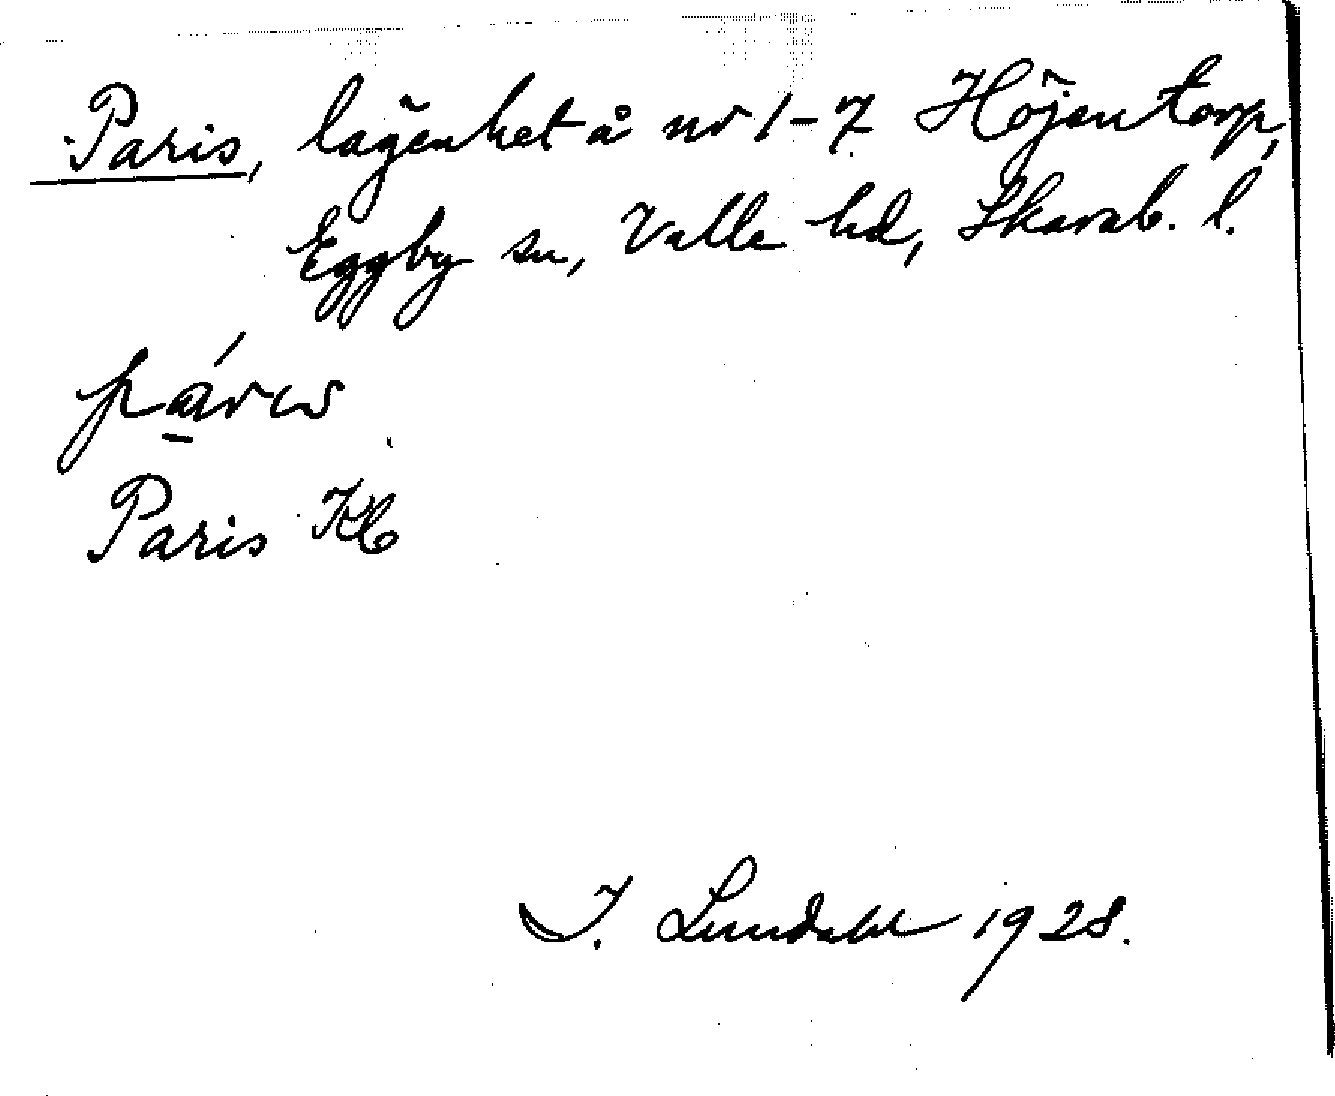 Paris, lägenhet å nr 1-7 Höjentorp,
Eggby sn, Valle hd, Skarab. l.
páris
Paris Kb
I. Lundahl 1928.